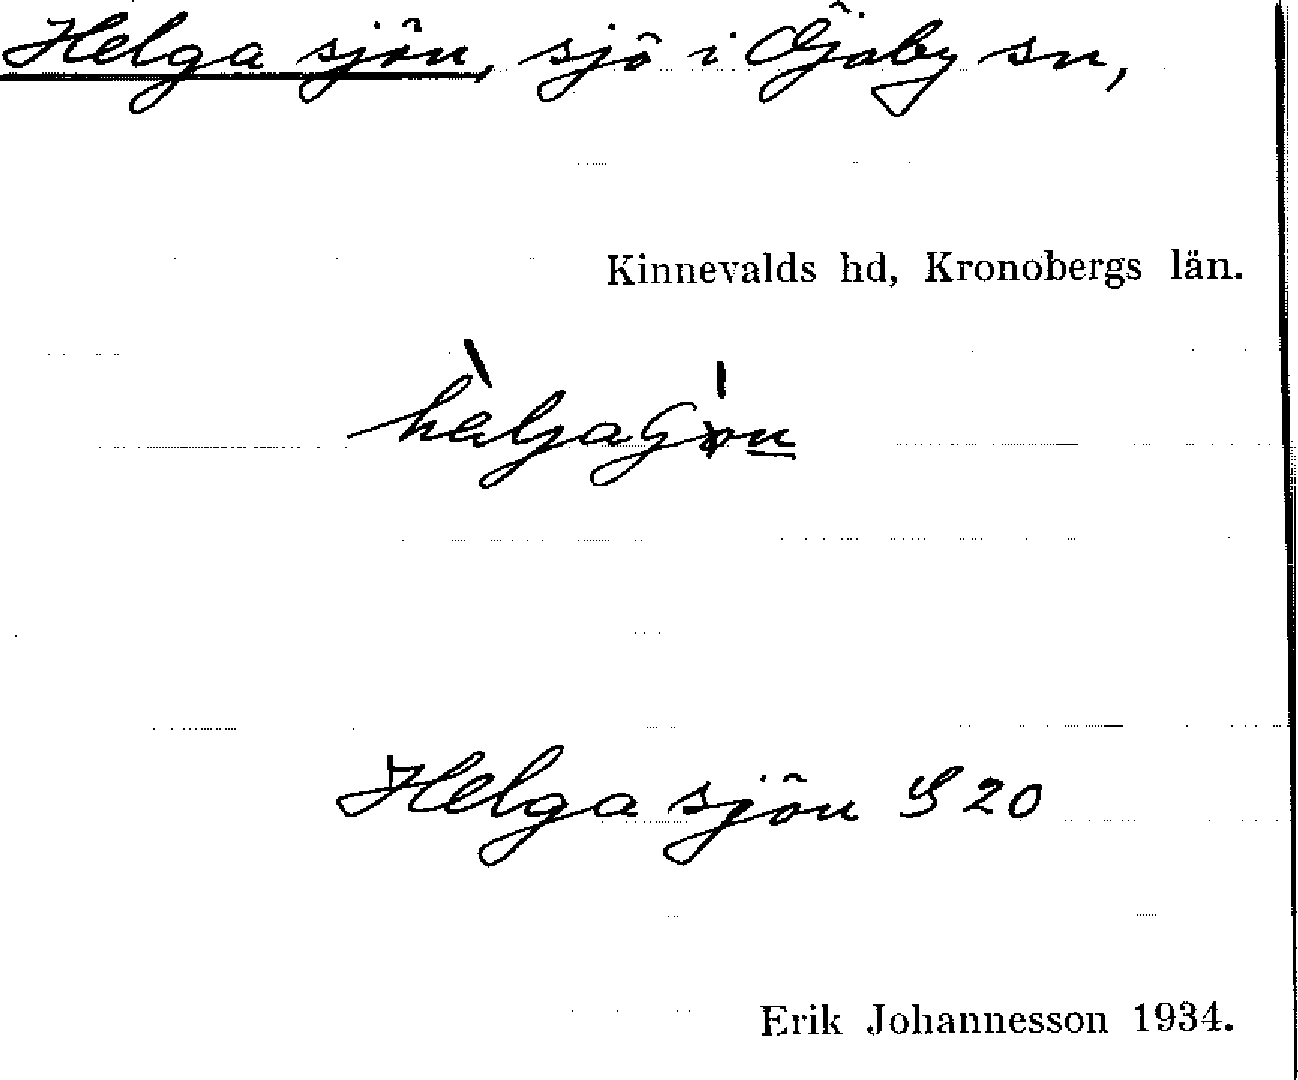 Helga sjön, sjö i Öjaby sn,
Kinnevalds hd, Kronobergs län.
Helga sjön S 20
Erik Johannesson 1934.